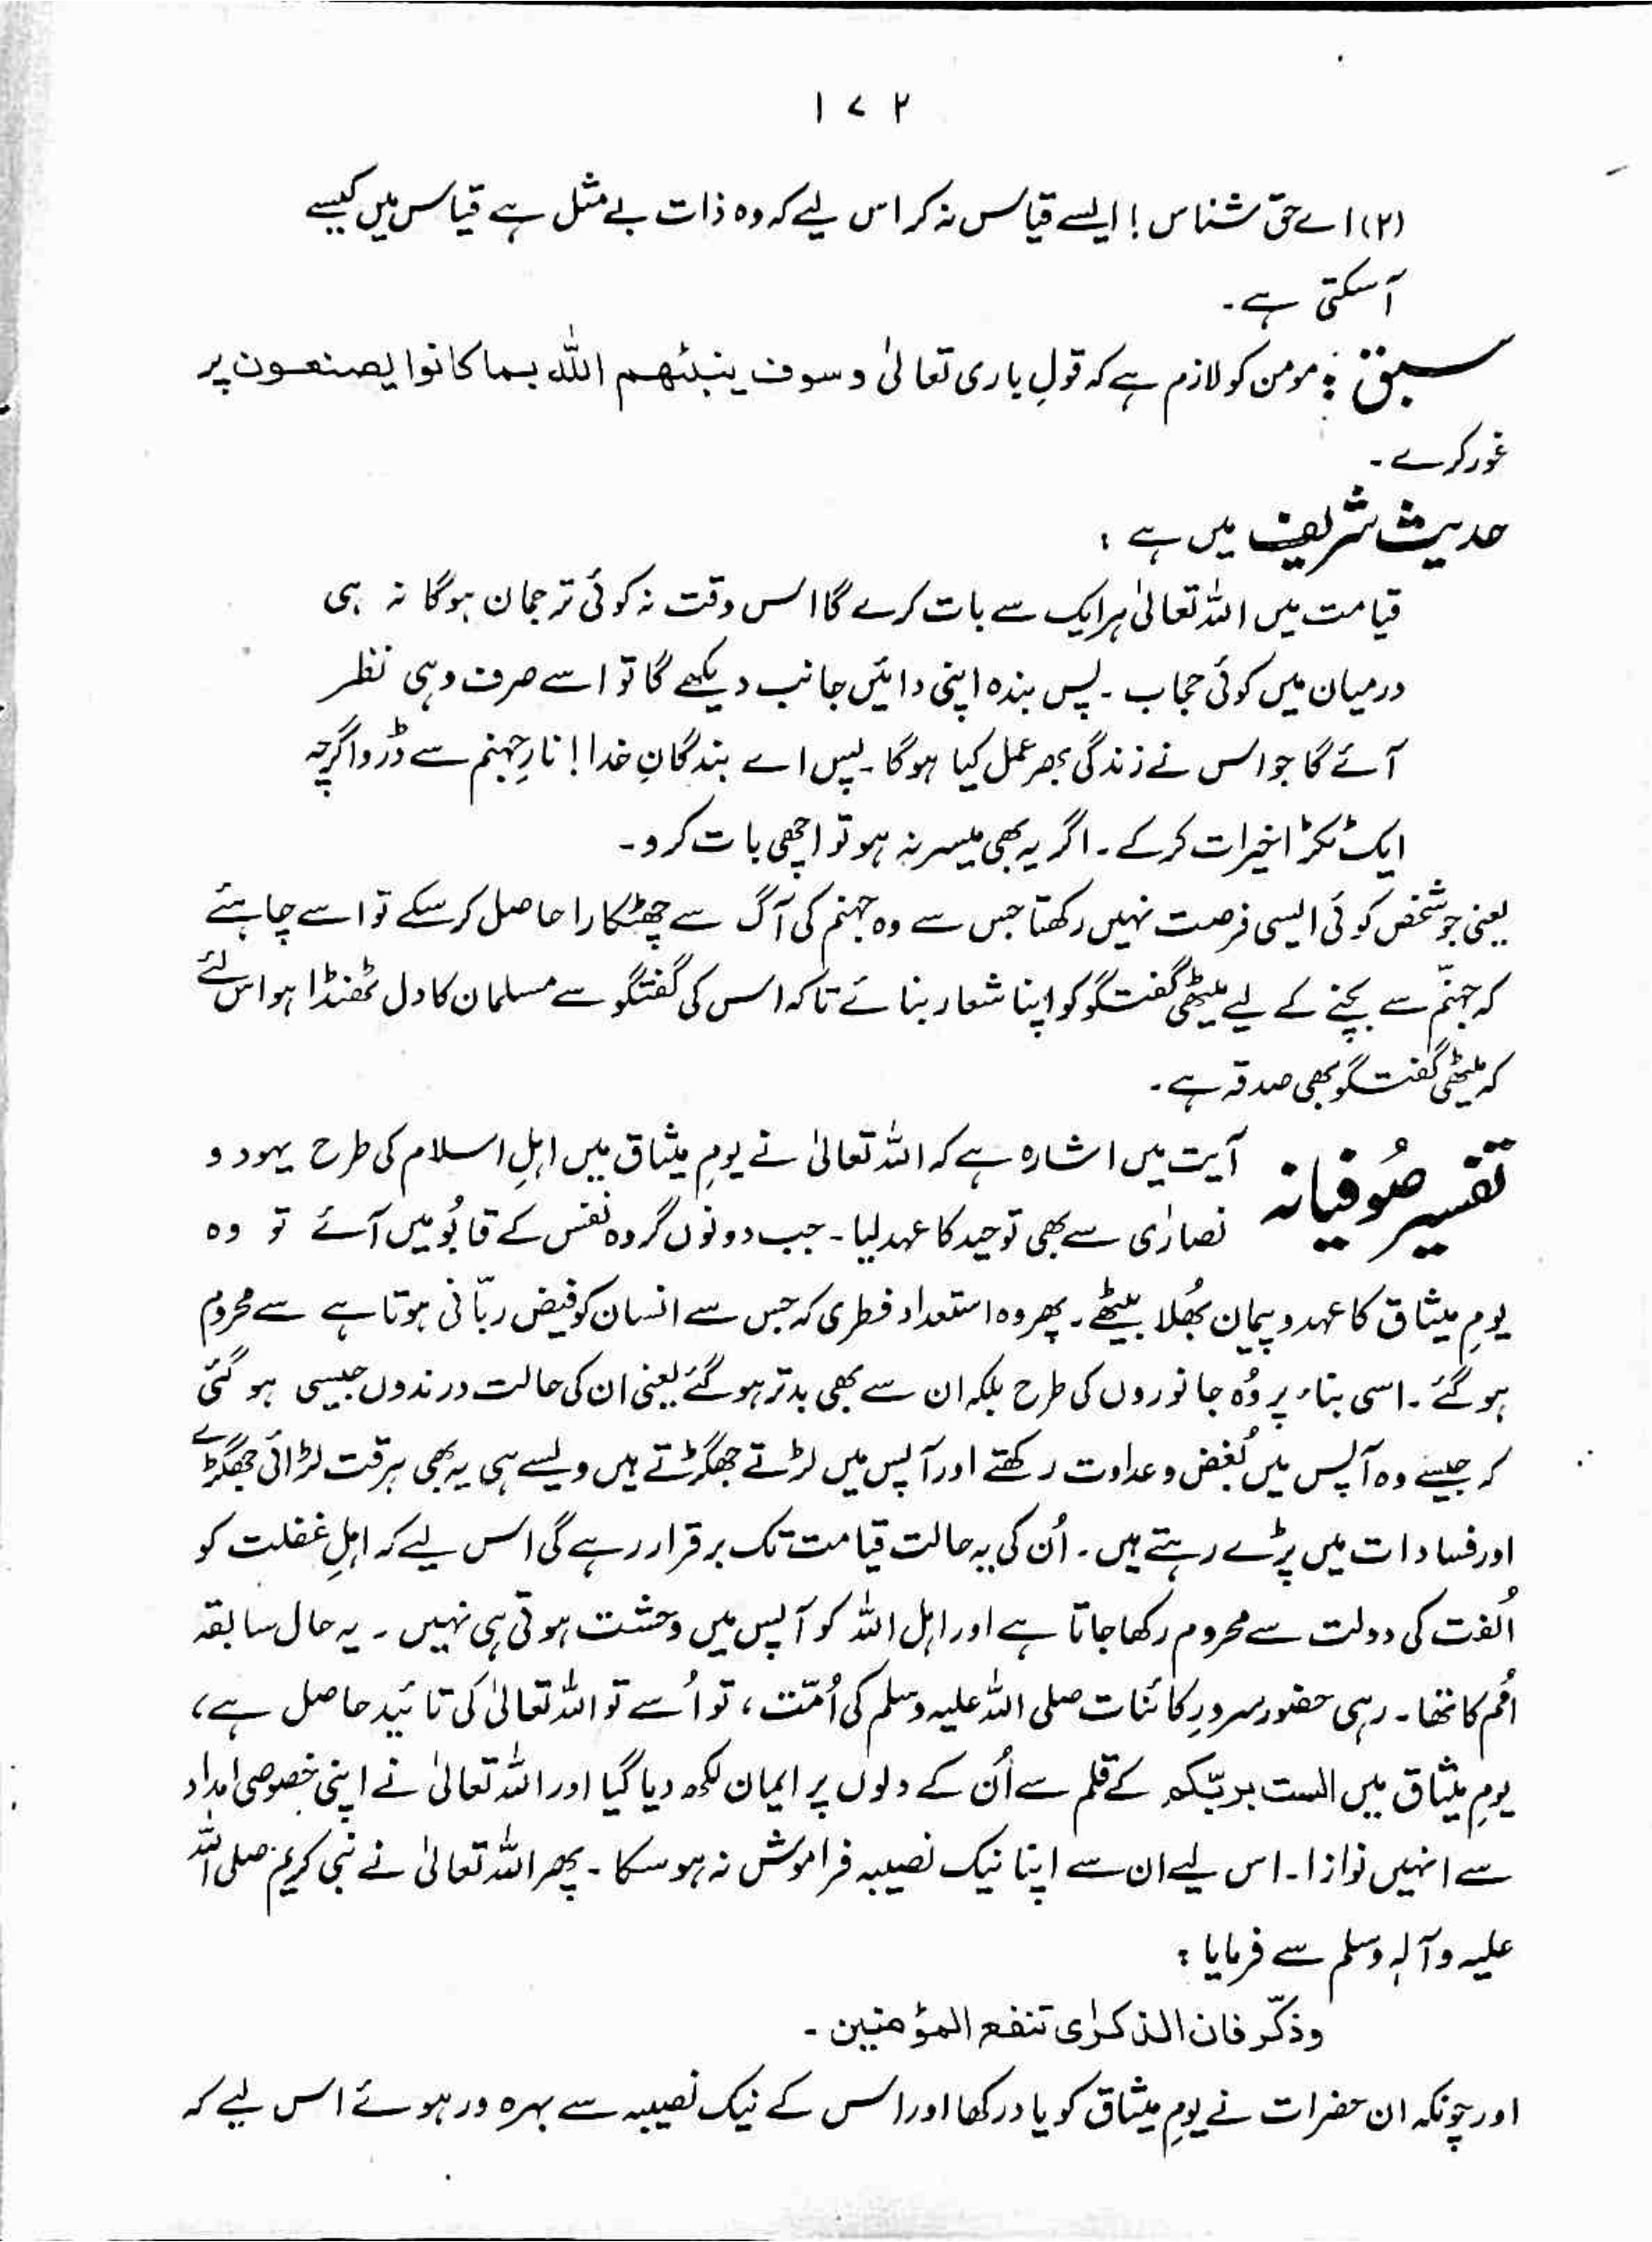 ۱۷۲
(۲) اے حق شناس! ایسے قیاس نہ کر اس لیے کہ وہ ذات بے مثل ہے قیاس میں کیسے
آسکتی ہے۔
سبق : مومن کو لازم ہے کہ قولِ باری تعالیٰ و سوف ینبئھم اللہ بما کانوا یصنعون پر
غور کرے۔
حدیث شریف میں ہے :
قیامت میں اللہ تعالیٰ ہر ایک سے بات کرے گا اس وقت نہ کوئی ترجمان ہوگا نہ ہی
درمیان میں کوئی حجاب۔ پس بندہ اپنی دائیں جانب دیکھے گا تو اسے صرف وہی نظر
آئے گا جو اس نے زندگی بھر عمل کیا ہوگا۔ پس اے بندگانِ خدا! نارِ جہنم سے ڈرو اگرچہ
ایک ٹکڑا خیرات کرکے۔ اگر یہ بھی میسر نہ ہو تو اچھی بات کرو۔
یعنی جو شخص کوئی ایسی فرصت نہیں رکھتا جس سے وہ جہنم کی آگ سے چھٹکارا حاصل کر سکے تو اسے چاہئے
کہ جہنّم سے بچنے کے لیے میٹھی گفتگو کو اپنا شعار بنائے تاکہ اس کی گفتگو سے مسلمان کا دل ٹھنڈا ہو اس لئے
کہ میٹھی گفتگو بھی صدقہ ہے۔
تفسیر صُوفیانہ آیت میں اشارہ ہے کہ اللہ تعالیٰ نے یومِ میثاق میں اہلِ اسلام کی طرح یہود و
نصارٰی سے بھی توحید کا عہد لیا۔ جب دونوں گروہ نفس کے قابُو میں آئے تو وہ
یومِ میثاق کا عہد و پیمان بھُلا بیٹھے۔ پھر وہ استعداد فطری کہ جس سے انسان کو فیض ربّانی ہوتا ہے سے محروم
ہو گئے۔ اسی بناء پر وُہ جانوروں کی طرح بلکہ ان سے بھی بدتر ہو گئے یعنی ان کی حالت درندوں جیسی ہو گئی
کہ جیسے وہ آپس میں بُغض و عداوت رکھتے اور آپس میں لڑتے جھگڑتے ہیں ویسے ہی یہ بھی ہر وقت لڑائی جھگڑے
اور فسادات میں پڑے رہتے ہیں۔ اُن کی یہ حالت قیامت تک برقرار رہے گی اس لیے کہ اہلِ غفلت کو
اُلفت کی دولت سے محروم رکھا جاتا ہے اور اہل اللہ کو آپس میں وحشت ہوتی ہی نہیں۔ یہ حال سابقہ
اُمم کا تھا۔ رہی حضور سرورِ کائنات صلی اللہ علیہ وسلم کی اُمّت، تو اُسے تو اللہ تعالیٰ کی تائید حاصل ہے،
یومِ میثاق میں الست بربّکم کے قلم سے اُن کے دلوں پر ایمان لکھ دیا گیا اور اللہ تعالیٰ نے اپنی خصوصی امداد
سے انہیں نوازا۔ اس لیے ان سے اپنا نیک نصیبہ فراموش نہ ہو سکا۔ پھر اللہ تعالیٰ نے نبی کریم صلی اللہ
علیہ وآلہ وسلم سے فرمایا :
وذکّر فان الذکرٰی تنفع المؤمنین۔
اور چونکہ ان حضرات نے یومِ میثاق کو یاد رکھا اور اس کے نیک نصیبہ سے بہرہ ور ہوئے اس لیے کہ